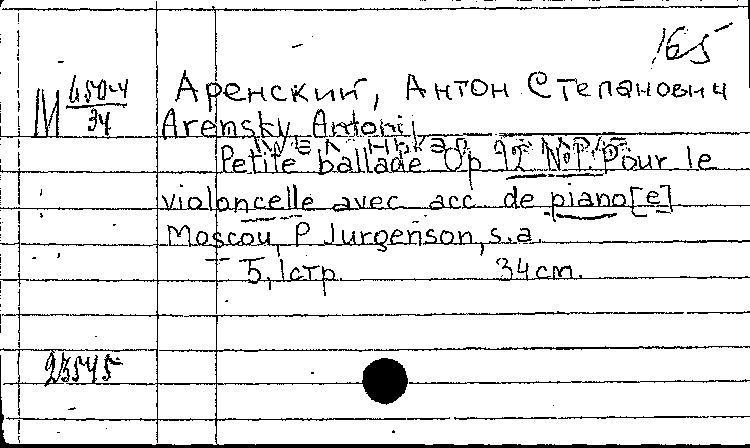 165
М 450-4/34
Аренский, Антон Степанович
Arensky, Antoni
Petite ballade Op 12 №1. Pour le
violoncelle avec acc. de piano[e]
Moscou, P Jurgenson, s.a.
5, 1 стр. 34 cm.
23545